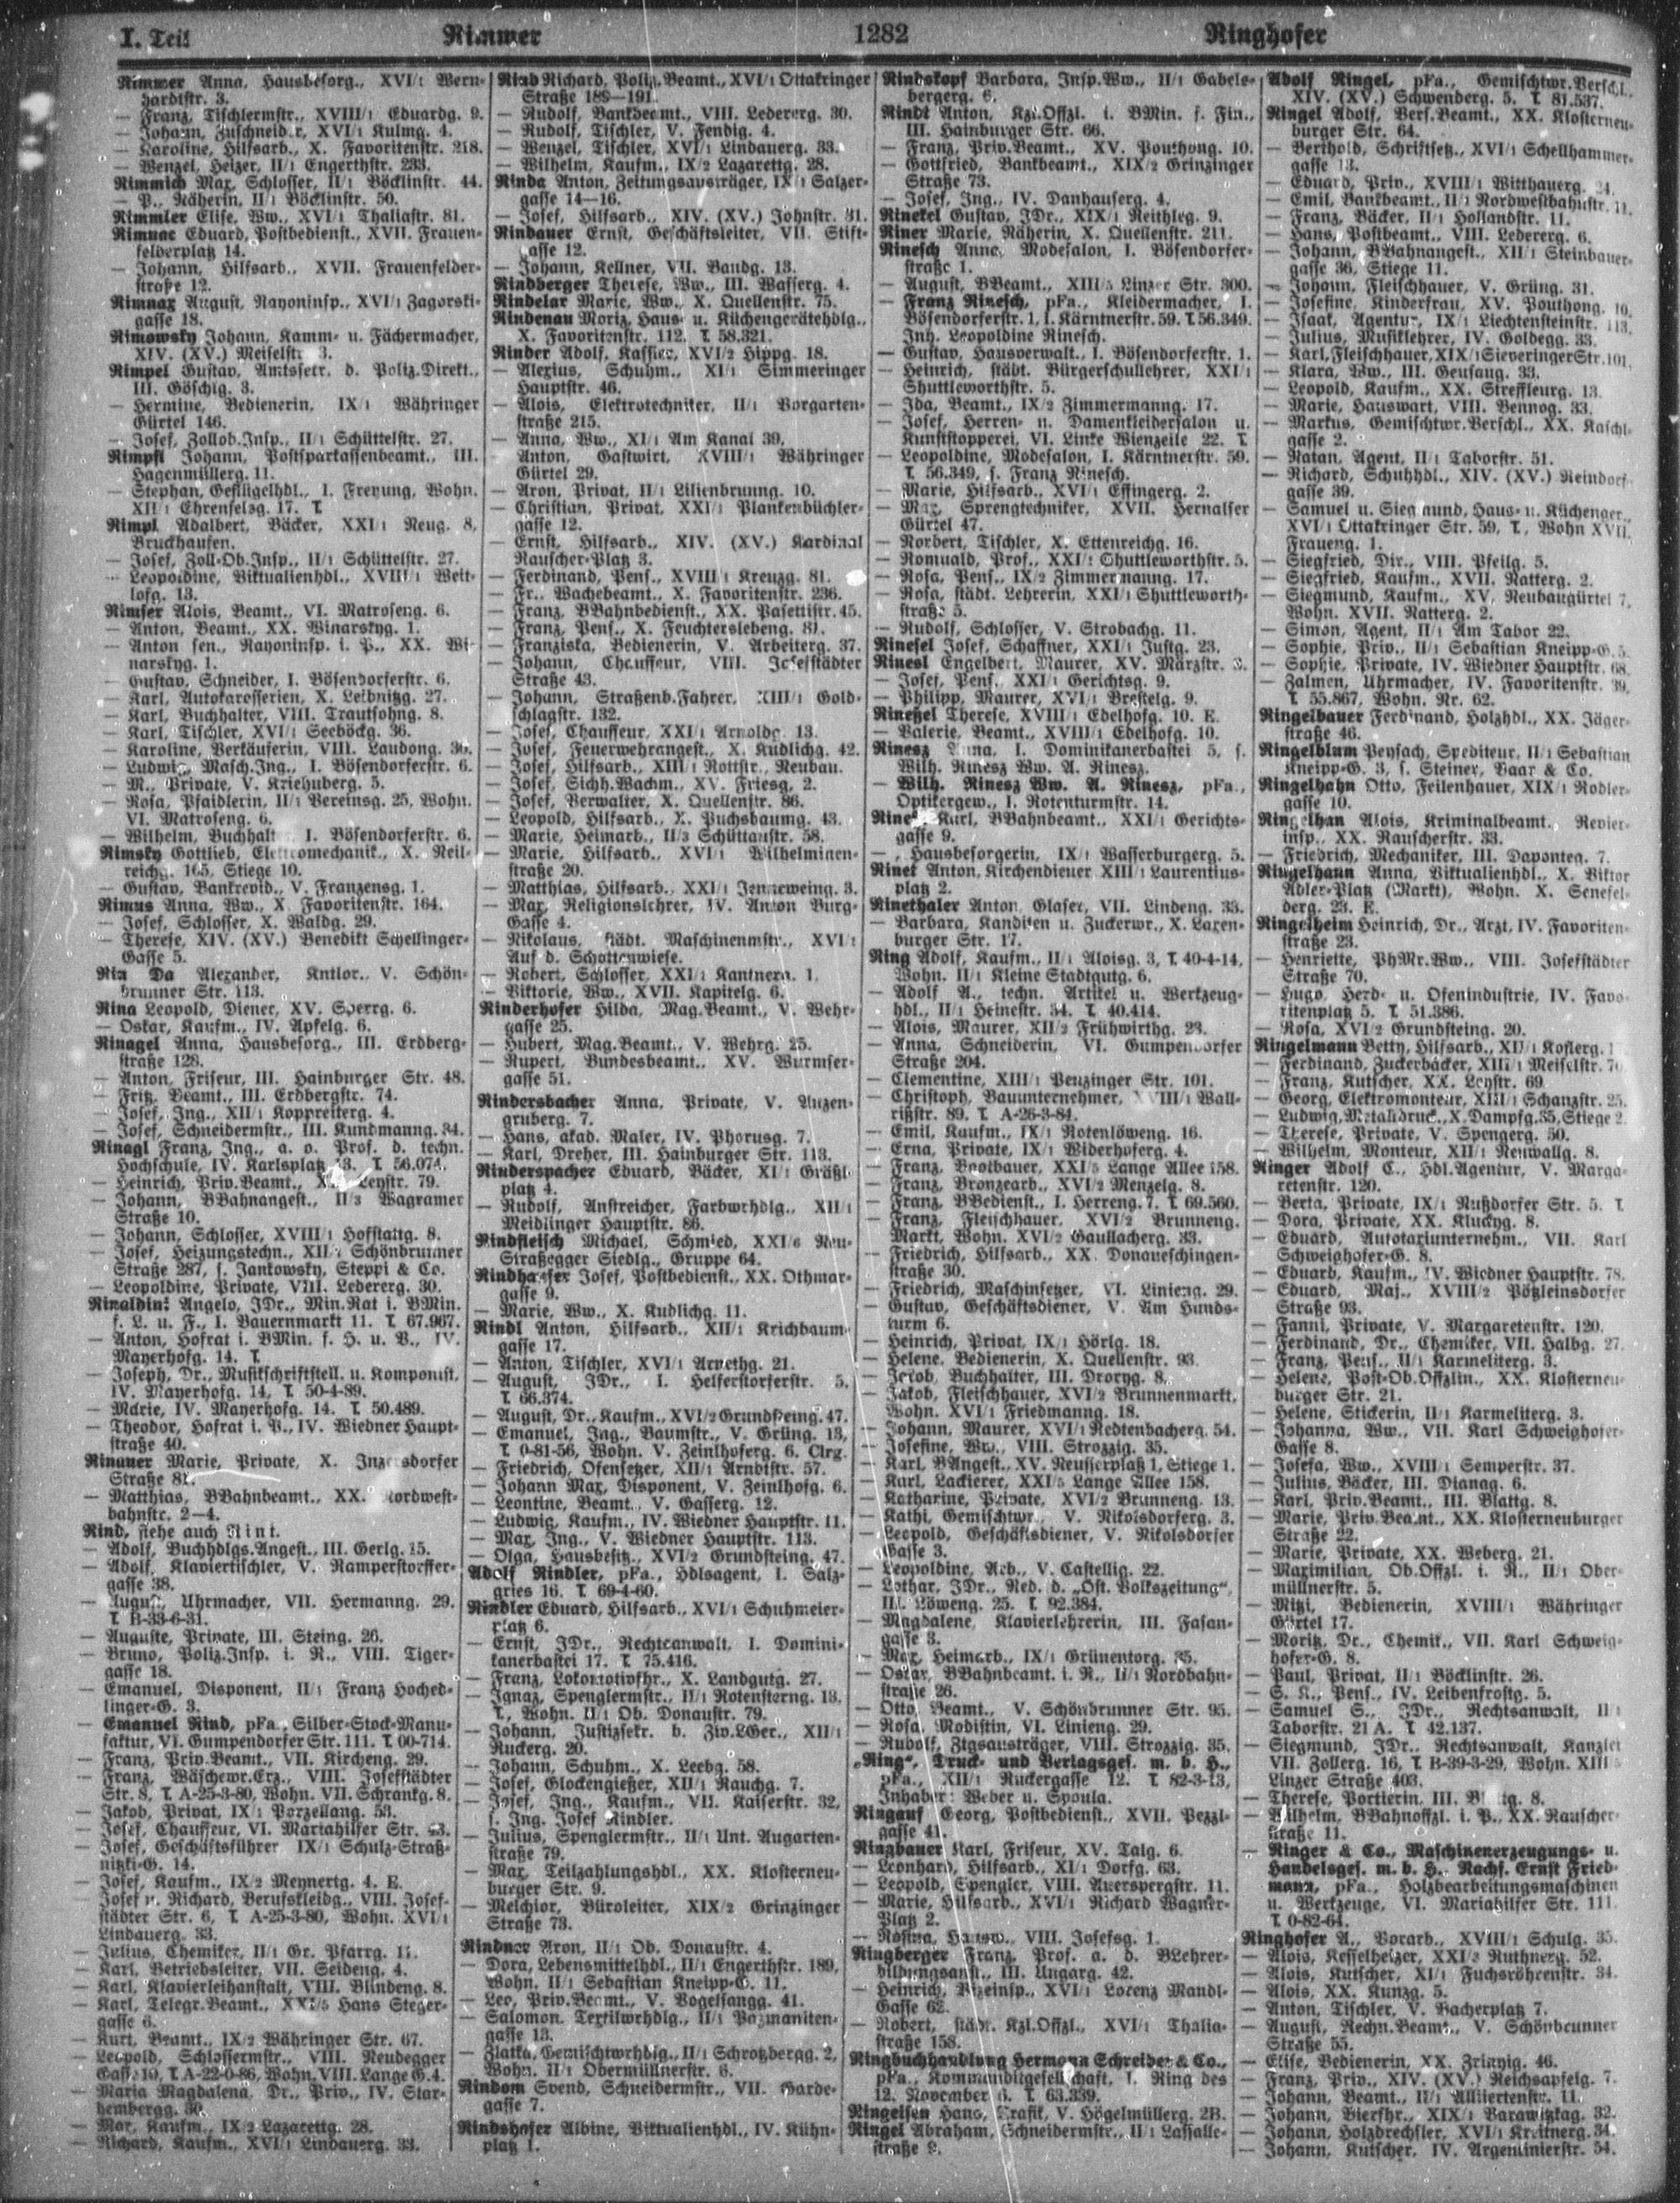 I. Teil
Rimmer
1282
Ringhofer
Rimmer Anna, Hausbesorg., XVI/1 Wern-
hardtstr. 3.
— Franz, Tischlermstr., XVIII/1 Eduardg. 9.
— Johann, Zuschneider, XVI/1 Kulmg. 4.
— Karoline, Hilfsarb., X. Favoritenstr. 218.
— Wenzel, Heizer, II/1 Engerthstr. 233.
Rimmich Max, Schlosser, II/1 Böcklinstr. 44.
— P., Näherin, II/1 Böcklinstr. 50.
Rimmler Elise, Ww., XVI/1 Thaliastr. 81.
Rimnac Eduard, Postbedienst., XVII. Frauen-
felderplatz 14.
— Johann, Hilfsarb., XVII. Frauenfelder-
straße 12.
Rimnax August, Rayoninsp., XVI/1 Zagorski-
gasse 18.
Rimowsky Johann, Kamm- u. Fächermacher,
XIV. (XV.) Meiselstr. 3.
Rimpel Gustav, Amtssekr. d. Poliz.Direkt.,
III. Göschlg. 3.
— Hermine, Bedienerin, IX/1 Währinger
Gürtel 146.
— Josef, Zollob.Insp., II/1 Schüttelstr. 27.
Rimpfl Johann, Postsparkassenbeamt., III.
Hagenmüllerg. 11.
— Stephan, Geflügelhdl., I. Freyung, Wohn.
XII/1 Ehrenfelsg. 17. T.
Rimpl Adalbert, Bäcker, XXI/1 Neug. 8,
Bruckhausen.
— Josef, Zoll-Ob.Insp., II/1 Schüttelstr. 27.
— Leopoldine, Viktualienhdl., XVIII/1 Weit-
lofg. 13.
Rimser Alois, Beamt., VI. Matroseng. 6.
— Anton, Beamt., XX. Winarskyg. 1.
— Anton sen., Rayoninsp. i. P., XX. Wi-
narskyg. 1.
— Gustav, Schneider, I. Bösendorferstr. 6.
— Karl, Autokarosserien, X. Leibnitzg. 27.
— Karl, Buchhalter, VIII. Trautsohng. 8.
— Karl, Tischler, XVI/1 Seeböckg. 36.
— Karoline, Verkäuferin, VIII. Laudong. 36.
— Ludwig, Masch.Ing., I. Bösendorferstr. 6.
— M., Private, V. Kriehuberg. 5.
— Rosa, Pfaidlerin, II/1 Vereinsg. 25, Wohn.
VI. Matroseng. 6.
— Wilhelm, Buchhalt., I. Bösendorferstr. 6.
Rimsky Gottlieb, Elektromechanik., X. Neil-
reichg. 105, Stiege 10.
— Gustav, Bankrevid., V. Franzensg. 1.
Rimus Anna, Ww., X. Favoritenstr. 164.
— Josef, Schlosser, X. Waldg. 29.
— Therese, XIV. (XV.) Benedikt Schellinger-
Gasse 5.
Rin Da Alexander, Kntlor., V. Schön-
brunner Str. 113.
Rina Leopold, Diener, XV. Sperrg. 6.
— Oskar, Kaufm., IV. Apfelg. 6.
Rinagel Anna, Hausbesorg., III. Erdberg-
straße 128.
— Anton, Friseur, III. Hainburger Str. 48.
— Fritz, Beamt., III. Erdbergstr. 74.
— Josef, Ing., XII/1 Koppreiterg. 4.
— Josef, Schneidermstr., III. Kundmanng. 34.
Rinagl Franz, Ing., a. o. Prof. d. techn.
Hochschule, IV. Karlsplatz 13. T. 56.074.
— Heinrich, Priv.Beamt., Leystr. 79.
— Johann, BBahnangest., II/3 Wagramer
Straße 10.
— Johann, Schlosser, XVIII/1 Hofstattg. 8.
— Josef, Heizungstechn., XII/1 Schönbrunner
Straße 287, s. Jantowsky, Steppi & Co.
— Leopoldine, Private, VIII. Ledererg. 30.
Rinaldini Angelo, JDr., Min.Rat i. BMin.
f. L. u. F., I. Bauernmarkt 11. T. 67.967.
— Anton, Hofrat i. BMin. f. H. u. V., IV.
Mayerhofg. 14. T.
— Joseph, Dr., Musikschriftstell. u. Komponist,
IV. Mayerhofg. 14, T. 50-4-89.
— Marie, IV. Mayerhofg. 14. T. 50.489.
— Theodor, Hofrat i. P., IV. Wiedner Haupt-
straße 40.
Rinauer Marie, Private, X. Inzersdorfer
Straße 81.
— Matthias, BBahnbeamt., XX. Nordwest-
bahnstr. 2—4.
Rind, siehe auch Rint.
— Adolf, Buchhdlgs.Angest., III. Gerlg. 15.
— Adolf, Klaviertischler, V. Ramperstorffer-
gasse 38.
— August, Uhrmacher, VII. Hermanng. 29.
T. B-33-6-31.
— Auguste, Private, III. Steing. 26.
— Bruno, Poliz.Insp. i. R., VIII. Tiger-
gasse 18.
— Emanuel, Disponent, II/1 Franz Hoched-
linger-G. 3.
— Emanuel Rind, pFa., Silber-Stock-Manu-
faktur, VI. Gumpendorfer Str. 111. T. 00-714.
— Franz, Priv.Beamt., VII. Kircheng. 29.
— Franz, Wäschewr.Erz., VIII. Josefstädter
Str. 8, T. A-25-3-80, Wohn. VII. Schrankg. 8.
— Jakob, Privat, IX/1 Porzellang. 53.
— Josef, Chauffeur, VI. Mariahilfer Str.
— Josef, Geschäftsführer IX/1 Schulz-Straß-
nitzki-G. 14.
— Josef, Kaufm., IX/2 Meynertg. 4. E.
— Josef u. Richard, Berufskleidg., VIII. Josef-
städter Str. 6, T. A-25-3-80, Wohn. XVI/1
Lindauerg. 33.
— Julius, Chemiker, II/1 Gr. Pfarrg. 11.
— Karl, Betriebsleiter, VII. Seideng. 4.
— Karl, Klavierleihanstalt, VIII. Blindeng. 8.
— Karl, Telegr.Beamt., XXI/5 Hans Steger-
gasse 6.
— Kurt, Beamt., IX/2 Währinger Str. 67.
— Leopold, Schlossermstr., VIII. Neudegger
Gasse 10, T. A-22-0-86, Wohn. VIII. Lange G. 4.
— Maria Magdalena, Dr., Priv., IV. Star-
hembergg. 30.
— Max, Kaufm., IX/2 Lazarettg. 28.
— Richard, Kaufm., XVI/1 Lindauerg. 33.
Rind Richard, Poliz.Beamt., XVI/1 Ottakringer
Straße 189—191.
— Rudolf, Bankbeamt., VIII. Ledererg. 30.
— Rudolf, Tischler, V. Fendig. 4.
— Wenzel, Tischler, XVI/1 Lindauerg. 33.
— Wilhelm, Kaufm., IX/2 Lazarettg. 28.
Rinda Anton, Zeitungsausträger, IX/1 Salzer-
gasse 14—16.
— Josef, Hilfsarb., XIV. (XV.) Johnstr. 31.
Rindauer Ernst, Geschäftsleiter, VII. Stift-
gasse 12.
— Johann, Kellner, VII. Bandg. 13.
Rindberger Therese, Ww., III. Wasserg. 4.
Rindelar Marie, Ww., X. Quellenstr. 75.
Rindenau Moriz, Haus- u. Küchengerätehdlg.,
X. Favoritenstr. 112. T. 58.321.
Rinder Adolf, Kassier, XVI/2 Hippg. 18.
— Alexius, Schuhm., XI/1 Simmeringer
Hauptstr. 46.
— Alois, Elektrotechniker, II/1 Vorgarten-
straße 215.
— Anna, Ww., XI/1 Am Kanal 39.
— Anton, Gastwirt, XVIII/1 Währinger
Gürtel 29.
— Aron, Privat, II/1 Lilienbrunng. 10.
— Christian, Privat, XXI/1 Plankenbüchler-
gasse 12.
— Ernst, Hilfsarb., XIV. (XV.) Kardinal
Rauscher-Platz 3.
— Ferdinand, Pens., XVIII/1 Kreuzg. 81.
— Fr., Wachebeamt., X. Favoritenstr. 236.
— Franz, BBahnbedienst., XX. Pasettistr. 45.
— Franz, Pens., X. Feuchterslebeng. 81.
— Franziska, Bedienerin, V. Arbeiterg. 37.
— Johann, Chauffeur, VIII. Josefstädter
Straße 43.
— Johann, Straßenb.Fahrer, XIII/1 Gold-
schlagstr. 132.
— Josef, Chauffeur, XXI/1 Arnoldg. 13.
— Josef, Feuerwehrangest., X. Kudlichg. 42.
— Josef, Hilfsarb., XIII/1 Rottstr., Neubau.
— Josef, Sichh.Wachm., XV. Friesg. 2.
— Josef, Verwalter, X. Quellenstr. 86.
— Leopold, Hilfsarb., X. Puchsbaumg. 43.
— Marie, Heimarb., II/3 Schüttaustr. 58.
— Marie, Hilfsarb., XVI/1 Wilhelminen-
straße 20.
— Matthias, Hilfsarb., XXI/1 Jenneweing. 3.
— Max, Religionslehrer, IV. Anton Burg-
Gasse 4.
— Nikolaus, städt. Maschinenmstr., XVI/1
Auf d. Schottenwiese.
— Robert, Schlosser, XXI/1 Kantnerg. 1.
— Viktorie, Ww., XVII. Kapitelg. 6.
Rinderhofer Hilda, Mag.Beamt., V. Wehr-
gasse 25.
— Hubert, Mag.Beamt., V. Wehrg. 25.
— Rupert, Bundesbeamt., XV. Wurmser-
gasse 51.
Rindersbacher Anna, Private, V. Anzen-
gruberg. 7.
— Hans, akad. Maler, IV. Phorusg. 7.
— Karl, Dreher, III. Hainburger Str. 113.
Rinderspacher Eduard, Bäcker, XI/1 Gräßl-
platz 4.
— Rudolf, Anstreicher, Farbwrhdlg., XII/1
Meidlinger Hauptstr. 86.
Rindfleisch Michael, Schmied, XXI/6 Neu-
Straßegger Siedlg., Gruppe 64.
Rindhauser Josef, Postbedienst., XX. Othmar-
gasse 9.
— Marie, Ww., X. Kudlichg. 11.
Rindl Anton, Hilfsarb., XII/1 Krichbaum-
gasse 17.
— Anton, Tischler, XVI/1 Arnethg. 21.
— August, JDr., I. Helferstorferstr. 5.
T. 66.374.
— August, Dr., Kaufm., XVI/2 Grundsteing. 47.
— Emanuel, Ing., Baumstr., V. Grüng. 13,
T. 0-81-56, Wohn. V. Zeinlhoferg. 6. Clrg.
— Friedrich, Ofensetzer, XII/1 Arndtstr. 57.
— Johann Max, Disponent, V. Zeinlhofg. 6.
— Leontine, Beamt., V. Gasserg. 12.
— Ludwig, Kaufm., IV. Wiedner Hauptstr. 11.
— Max, Ing., V. Wiedner Hauptstr. 113.
— Olga, Hausbesitz., XVI/2 Grundsteing. 47.
Adolf Rindler, pFa., Hdlsagent, I. Salz-
gries 16. T. 69-4-60.
Rindler Eduard, Hilfsarb., XVI/1 Schuhmeier-
platz 6.
— Ernst, JDr., Rechtsanwalt, I. Domini-
kanerbastei 17. T. 75.416.
— Franz, Lokomotivfhr., X. Landgutg. 27.
— Ignaz, Spenglermstr., II/1 Rotensterng. 13.
T., Wohn. II/1 Ob. Donaustr. 79.
— Johann, Justizsekr. b. Ziv.LGer., XII/1
Ruckerg. 20.
— Johann, Schuhm., X. Leebg. 58.
— Josef, Glockengießer, XII/1 Rauchg. 7.
— Josef, Ing., Kaufm., VII. Kaiserstr. 32,
s. Ing. Josef Rindler.
— Julius, Spenglermstr., II/1 Unt. Augarten-
straße 79.
— Max, Teilzahlungshdl., XX. Klosterneu-
burger Str. 9.
— Melchior, Büroleiter, XIX/2 Grinzinger
Straße 73.
Rindner Aron, II/1 Ob. Donaustr. 4.
— Dora, Lebensmittelhdl., II/1 Engerthstr. 189,
Wohn. II/1 Sebastian Kneipp-G. 11.
— Leo, Priv.Beamt., V. Vogelsangg. 41.
— Salomon, Textilwrhdlg., II/1 Pazmaniten-
gasse 13.
— Zlatka, Gemischtwrhdlg., II/1 Schrotzbergg. 2,
Wohn. II/1 Obermüllnerstr. 6.
Rindom Svend, Schneidermstr., VII. Garde-
gasse 7.
Rindshofer Albine, Viktualienhdl., IV. Kühn-
platz 1.
Rindskopf Barbara, Insp.Ww., II/1 Gabels-
bergerg. 6.
Rindt Anton, Kzl.Offzl. i. BMin. f. Fin.,
III. Hainburger Str. 66.
— Franz, Priv.Beamt., XV. Pouthong. 10.
— Gottfried, Bankbeamt., XIX/2 Grinzinger
Straße 73.
— Josef, Ing., IV. Danhauserg. 4.
Rinekel Gustav, JDr., XIX/1 Reithleg. 9.
Riner Marie, Näherin, X. Quellenstr. 211.
Rinesch Anna, Modesalon, I. Bösendorfer-
straße 1.
— August, BBeamt., XIII/5 Linzer Str. 300.
— Franz Rinesch, pFa., Kleidermacher, I.
Bösendorferstr. 1, I. Kärntnerstr. 59. T. 56.349.
Inh. Leopoldine Rinesch.
— Gustav, Hausverwalt., I. Bösendorferstr. 1.
— Heinrich, städt. Bürgerschullehrer, XXI/1
Shuttleworthstr. 5.
— Ida, Beamt., IX/2 Zimmermanng. 17.
— Josef, Herren- u. Damenkleidersalon u.
Kunststopperei, VI. Linke Wienzeile 22. T.
— Leopoldine, Modesalon, I. Kärntnerstr. 59.
T. 56.349, s. Franz Rinesch.
— Marie, Hilfsarb., XVI/1 Effingerg. 2.
— Max, Sprengtechniker, XVII. Hernalser
Gürtel 47.
— Norbert, Tischler, X. Ettenreichg. 16.
— Romuald, Prof., XXI/1 Shuttleworthstr. 5.
— Rosa, Pens., IX/2 Zimmermanng. 17.
— Rosa, städt. Lehrerin, XXI/1 Shuttleworth-
straße 5.
— Rudolf, Schlosser, V. Strobachg. 11.
Rinesel Josef, Schaffner, XXI/1 Justg. 23.
Rinesl Engelbert, Maurer, XV. Märzstr. 3.
— Josef, Pens., XXI/1 Gerichtsg. 9.
— Philipp, Maurer, XVI/1 Brestelg. 9.
Rineßel Therese, XVIII/1 Edelhofg. 10. E.
— Valerie, Beamt., XVIII/1 Edelhofg. 10.
Rinesz Anna, I. Dominikanerbastei 5, s.
Wilh. Rinesz Ww. A. Rinesz.
— Wilh. Rinesz Ww. A. Rinesz, pFa.,
Optikergew., I. Rotenturmstr. 14.
Karl, BBahnbeamt., XXI/1 Gerichts-
gasse 9.
— , Hausbesorgerin, IX/1 Wasserburgerg. 5.
Rinet Anton, Kirchendiener XIII/1 Laurentius-
platz 2.
Rinethaler Anton, Glaser, VII. Lindeng. 33.
— Barbara, Kanditen u. Zuckerwr., X. Laxen-
burger Str. 17.
Ring Adolf, Kaufm., II/1 Aloisg. 3, T. 40-4-14,
Wohn. II/1 Kleine Stadtgutg. 6.
— Adolf A., techn. Artikel u. Werkzeug-
hdl., II/1 Heinestr. 34. T. 40.414.
— Alois, Maurer, XII/2 Frühwirthg. 23.
— Anna, Schneiderin, VI. Gumpendorfer
Straße 204.
— Clementine, XIII/1 Penzinger Str. 101.
— Christoph, Bauunternehmer, XVIII/1 Wall-
rißstr. 89. T. A-26-3-84.
— Emil, Kaufm., IX/1 Rotenlöweng. 16.
— Erna, Private, IX/1 Widerhoferg. 4.
— Franz, Bootbauer, XXI/5 Lange Allee 158.
— Franz, Bronzearb., XVI/2 Menzelg. 8.
— Franz, BBedienst., I. Herreng. 7. T. 69.560.
— Franz, Fleischhauer, XVI/2 Brunneng.
Markt, Wohn. XVI/2 Gaullacherg. 33.
— Friedrich, Hilfsarb., XX. Donaueschingen-
straße 30.
— Friedrich, Maschinsetzer, VI. Linieng. 29.
— Gustav, Geschäftsdiener, V. Am Hunds-
turm 6.
— Heinrich, Privat, IX/1 Hörlg. 18.
— Helene, Bedienerin, X. Quellenstr. 93.
— Jakob, Buchhalter, III. Droryg. 8.
— Jakob, Fleischhauer, XVI/2 Brunnenmarkt,
Wohn. XVI/1 Friedmanng. 18.
— Johann, Maurer, XVI/1 Redtenbacherg. 54.
— Josefine, Ww., VIII. Strozzig. 35.
— Karl, BAngest., XV. Neusserplatz 1, Stiege 1.
— Karl, Lackierer, XXI/5 Lange Allee 158.
— Katharine, Private, XVI/2 Brunneng. 13.
— Kathi, Gemischtwr., V. Nikolsdorferg. 3.
— Leopold, Geschäftsdiener, V. Nikolsdorfer
Gasse 3.
— Leopoldine, Arb., V. Castellig. 22.
— Lothar, JDr., Red. d. „Öst. Volkszeitung“,
III. Löweng. 25. T. 92.384.
— Magdalene, Klavierlehrerin, III. Fasan-
gasse 3.
— Max, Heimarb., IX/1 Grünentorg. 35.
— Oskar, BBahnbeamt. i. R., II/1 Nordbahn-
straße 26.
— Otto, Beamt., V. Schönbrunner Str. 95.
— Rosa, Modistin, VI. Linieng. 29.
— Rudolf, Ztgsausträger, VIII. Strozzig. 35.
„Ring“, Druck- und Verlagsges. m. b. H.,
pFa., XII/1 Ruckergasse 12. T. 82-3-13,
Inhaber: Weber u. Spoula.
Ringauf Georg, Postbedienst., XVII. Pezzl-
gasse 41.
Ringbauer Karl, Friseur, XV. Talg. 6.
— Leonhard, Hilfsarb., XI/1 Dorfg. 63.
— Leopold, Spengler, VIII. Auerspergstr. 11.
— Marie, Hilfsarb., XVI/1 Richard Wagner-
Platz 2.
— Rosina, Hausw., VIII. Josefsg. 1.
Ringberger Franz, Prof. a. d. BLehrer-
bildungsanst., III. Ungarg. 42.
— Heinrich, Vizeinsp., XVI/1 Lorenz Mandl-
Gasse 62.
— Robert, städt. Kzl.Offzl., XVI/1 Thalia-
straße 158.
Ringbuchhandlung Hermann Schreiber & Co.,
pFa., Kommanditgesellschaft, I. Ring des
12. November 6. T. 63.339.
Ringeisen Hans, Trafik, V. Högelmüllerg. 2B.
Ringel Abraham, Schneidermstr., II/1 Lassalle-
straße 9.
Adolf Ringel, pFa., Gemischtwr.Verschl.,
XIV. (XV.) Schwenderg. 5. T. 81.537.
Ringel Adolf, Vers.Beamt., XX. Klosterneu-
burger Str. 64.
— Berthold, Schriftsetz., XVI/1 Schellhammer-
gasse 13.
— Eduard, Priv., XVIII/1 Witthauerg. 24.
— Emil, Bankbeamt., II/1 Nordwestbahnstr. 11.
— Franz, Bäcker, II/1 Hollandstr. 11.
— Hans, Postbeamt., VIII. Ledererg. 6.
— Johann, BBahnangest., XII/1 Steinbauer-
gasse 36, Stiege 11.
— Johann, Fleischhauer, V. Grüng. 31.
— Josefine, Kinderfrau, XV. Pouthong. 10.
— Isaak, Agentur, IX/1 Liechtensteinstr. 113.
— Julius, Musiklehrer, IV. Goldegg. 33.
— Karl, Fleischhauer, XIX/1 Sieveringer Str. 101.
— Klara, Ww., III. Geusaug. 33.
— Leopold, Kaufm., XX. Streffleurg. 13.
— Marie, Hauswart, VIII. Bennog. 33.
— Markus, Gemischtwr.Verschl., XX. Kaschl-
gasse 2.
— Natan, Agent, II/1 Taborstr. 51.
— Richard, Schuhhdl., XIV. (XV.) Reindorf-
gasse 39.
— Samuel u. Siegmund, Haus- u. Küchenger.,
XVI/1 Ottakringer Str. 59, T., Wohn XVII.
Fraueng. 1.
— Siegfried, Dir., VIII. Pfeilg. 5.
— Siegfried, Kaufm., XVII. Natterg. 2.
— Siegmund, Kaufm., XV. Neubaugürtel 7,
Wohn. XVII. Natterg. 2.
— Simon, Agent, II/1 Am Tabor 22.
— Sophie, Priv., II/1 Sebastian Kneipp-G. 5.
— Sophie, Private, IV. Wiedner Hauptstr. 68.
— Zalmen, Uhrmacher, IV. Favoritenstr. 39,
T. 55.867, Wohn. Nr. 62.
Ringelbauer Ferdinand, Holzhdl., XX. Jäger-
straße 46.
Ringelblum Peysach, Spediteur, II/1 Sebastian
Kneipp-G. 3, s. Steiner, Baar & Co.
Ringelhahn Otto, Feilenhauer, XIX/1 Rodler-
gasse 10.
Ringelhan Alois, Kriminalbeamt., Revier-
insp., XX. Rauscherstr. 33.
— Friedrich, Mechaniker, III. Daponteg. 7.
Ringelhann Anna, Viktualienhdl., X. Viktor
Adler-Platz (Markt), Wohn. X. Senefel-
derg. 23. E.
Ringelheim Heinrich, Dr., Arzt, IV. Favoriten-
straße 23.
— Henriette, PhMr.Ww., VIII. Josefstädter
Straße 70.
— Hugo, Herd- u. Ofenindustrie, IV. Favo-
ritenplatz 5. T. 51.386.
— Rosa, XVI/2 Grundsteing. 20.
Ringelmann Betty, Hilfsarb., XII/1 Koflerg. 1
— Ferdinand, Zuckerbäcker, XIII/1 Meiselstr.
— Franz, Kutscher, XX. Leystr. 69.
— Georg, Elektromonteur, XIII/1 Schanzstr. 25.
— Ludwig, Metalldruck., X. Dampfg. 35, Stiege 2.
— Therese, Private, V. Spengerg. 50.
— Wilhelm, Monteur, XII/1 Neuwallg. 8.
Ringer Adolf C., Hdl.Agentur, V. Marga-
retenstr. 120.
— Berta, Private, IX/1 Nußdorfer Str. 5. T.
— Dora, Private, XX. Kluckyg. 8.
— Eduard, Autotaxiunternehm., VII. Karl
Schweighofer-G. 8.
— Eduard, Kaufm., IV. Wiedner Hauptstr. 78.
— Eduard, Maj., XVIII/2 Pötzleinsdorfer
Straße 93.
— Fanni, Private, V. Margaretenstr. 120.
— Ferdinand, Dr., Chemiker, VII. Halbg. 27.
— Franz, Pens., II/1 Karmeliterg. 3.
— Helene, Post-Ob.Offzlin., XX. Klosterneu-
burger Str. 21.
— Helene, Stickerin, II/1 Karmeliterg. 3.
— Johanna, Ww., VII. Karl Schweighofer-
Gasse 8.
— Josefa, Ww., XVIII/1 Semperstr. 37.
— Julius, Bäcker, III. Dianag. 6.
— Karl, Priv.Beamt., III. Blattg. 8.
— Marie, Priv.Beamt., XX. Klosterneuburger
Straße 22.
— Marie, Private, XX. Weberg. 21.
— Maximilian, Ob.Offzl. i. R., II/1 Ober-
müllnerstr. 5.
— Mitzi, Bedienerin, XVIII/1 Währinger
Gürtel 17.
— Moritz, Dr., Chemik., VII. Karl Schweig-
hofer-G. 8.
— Paul, Privat, II/1 Böcklinstr. 26.
— S. K., Pens., IV. Leibenfrostg. 5.
— Samuel S., JDr., Rechtsanwalt, II/1
Taborstr. 21 A. T. 42.137.
— Siegmund, JDr., Rechtsanwalt, Kanzlei
VII. Zollerg. 16, T. B-39-3-29, Wohn. XIII/5
Linzer Straße 403.
— Therese, Portierin, III. 8.
— Wilhelm, BBahnoffzl. i. P., XX. Rauscher-
straße 11.
— Ringer & Co., Maschinenerzeugungs- u.
Handelsges. m. b. H., Nachf. Ernst Fried-
mann, pFa., Holzbearbeitungsmaschinen
u. Werkzeuge, VI. Mariahilfer Str. 111.
T. 0-82-64.
Ringhofer A., Vorarb., XVIII/1 Schulg. 35.
— Alois, Kesselheizer, XXI/3 Ruthnerg. 52.
— Alois, Kutscher, XI/1 Fuchsröhrenstr. 34.
— Alois, XX. Kunzg. 5.
— Anton, Tischler, V. Bacherplatz 7.
— August, Rechn.Beamt., V. Schönbrunner
Straße 55.
— Elise, Bedienerin, XX. Zrinyig. 46.
— Franz, Priv., XIV. (XV.) Reichsapfelg. 7.
— Johann, Beamt., II/1 Alliiertenstr. 11.
— Johann, Bierfhr., XIX/1 Barawitzkag. 32.
— Johann, Holzdrechsler, XVI/1 Kreitnerg. 34.
— Johann, Kutscher, IV. Argentinierstr. 54.